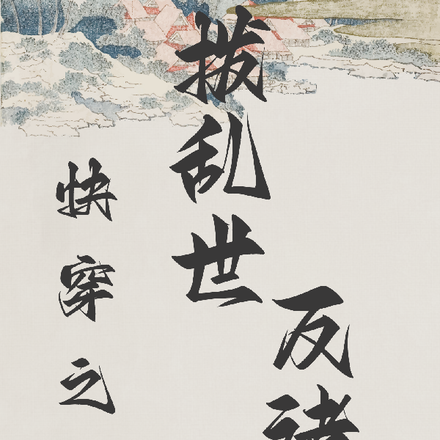 快穿之
拨乱世
反诸